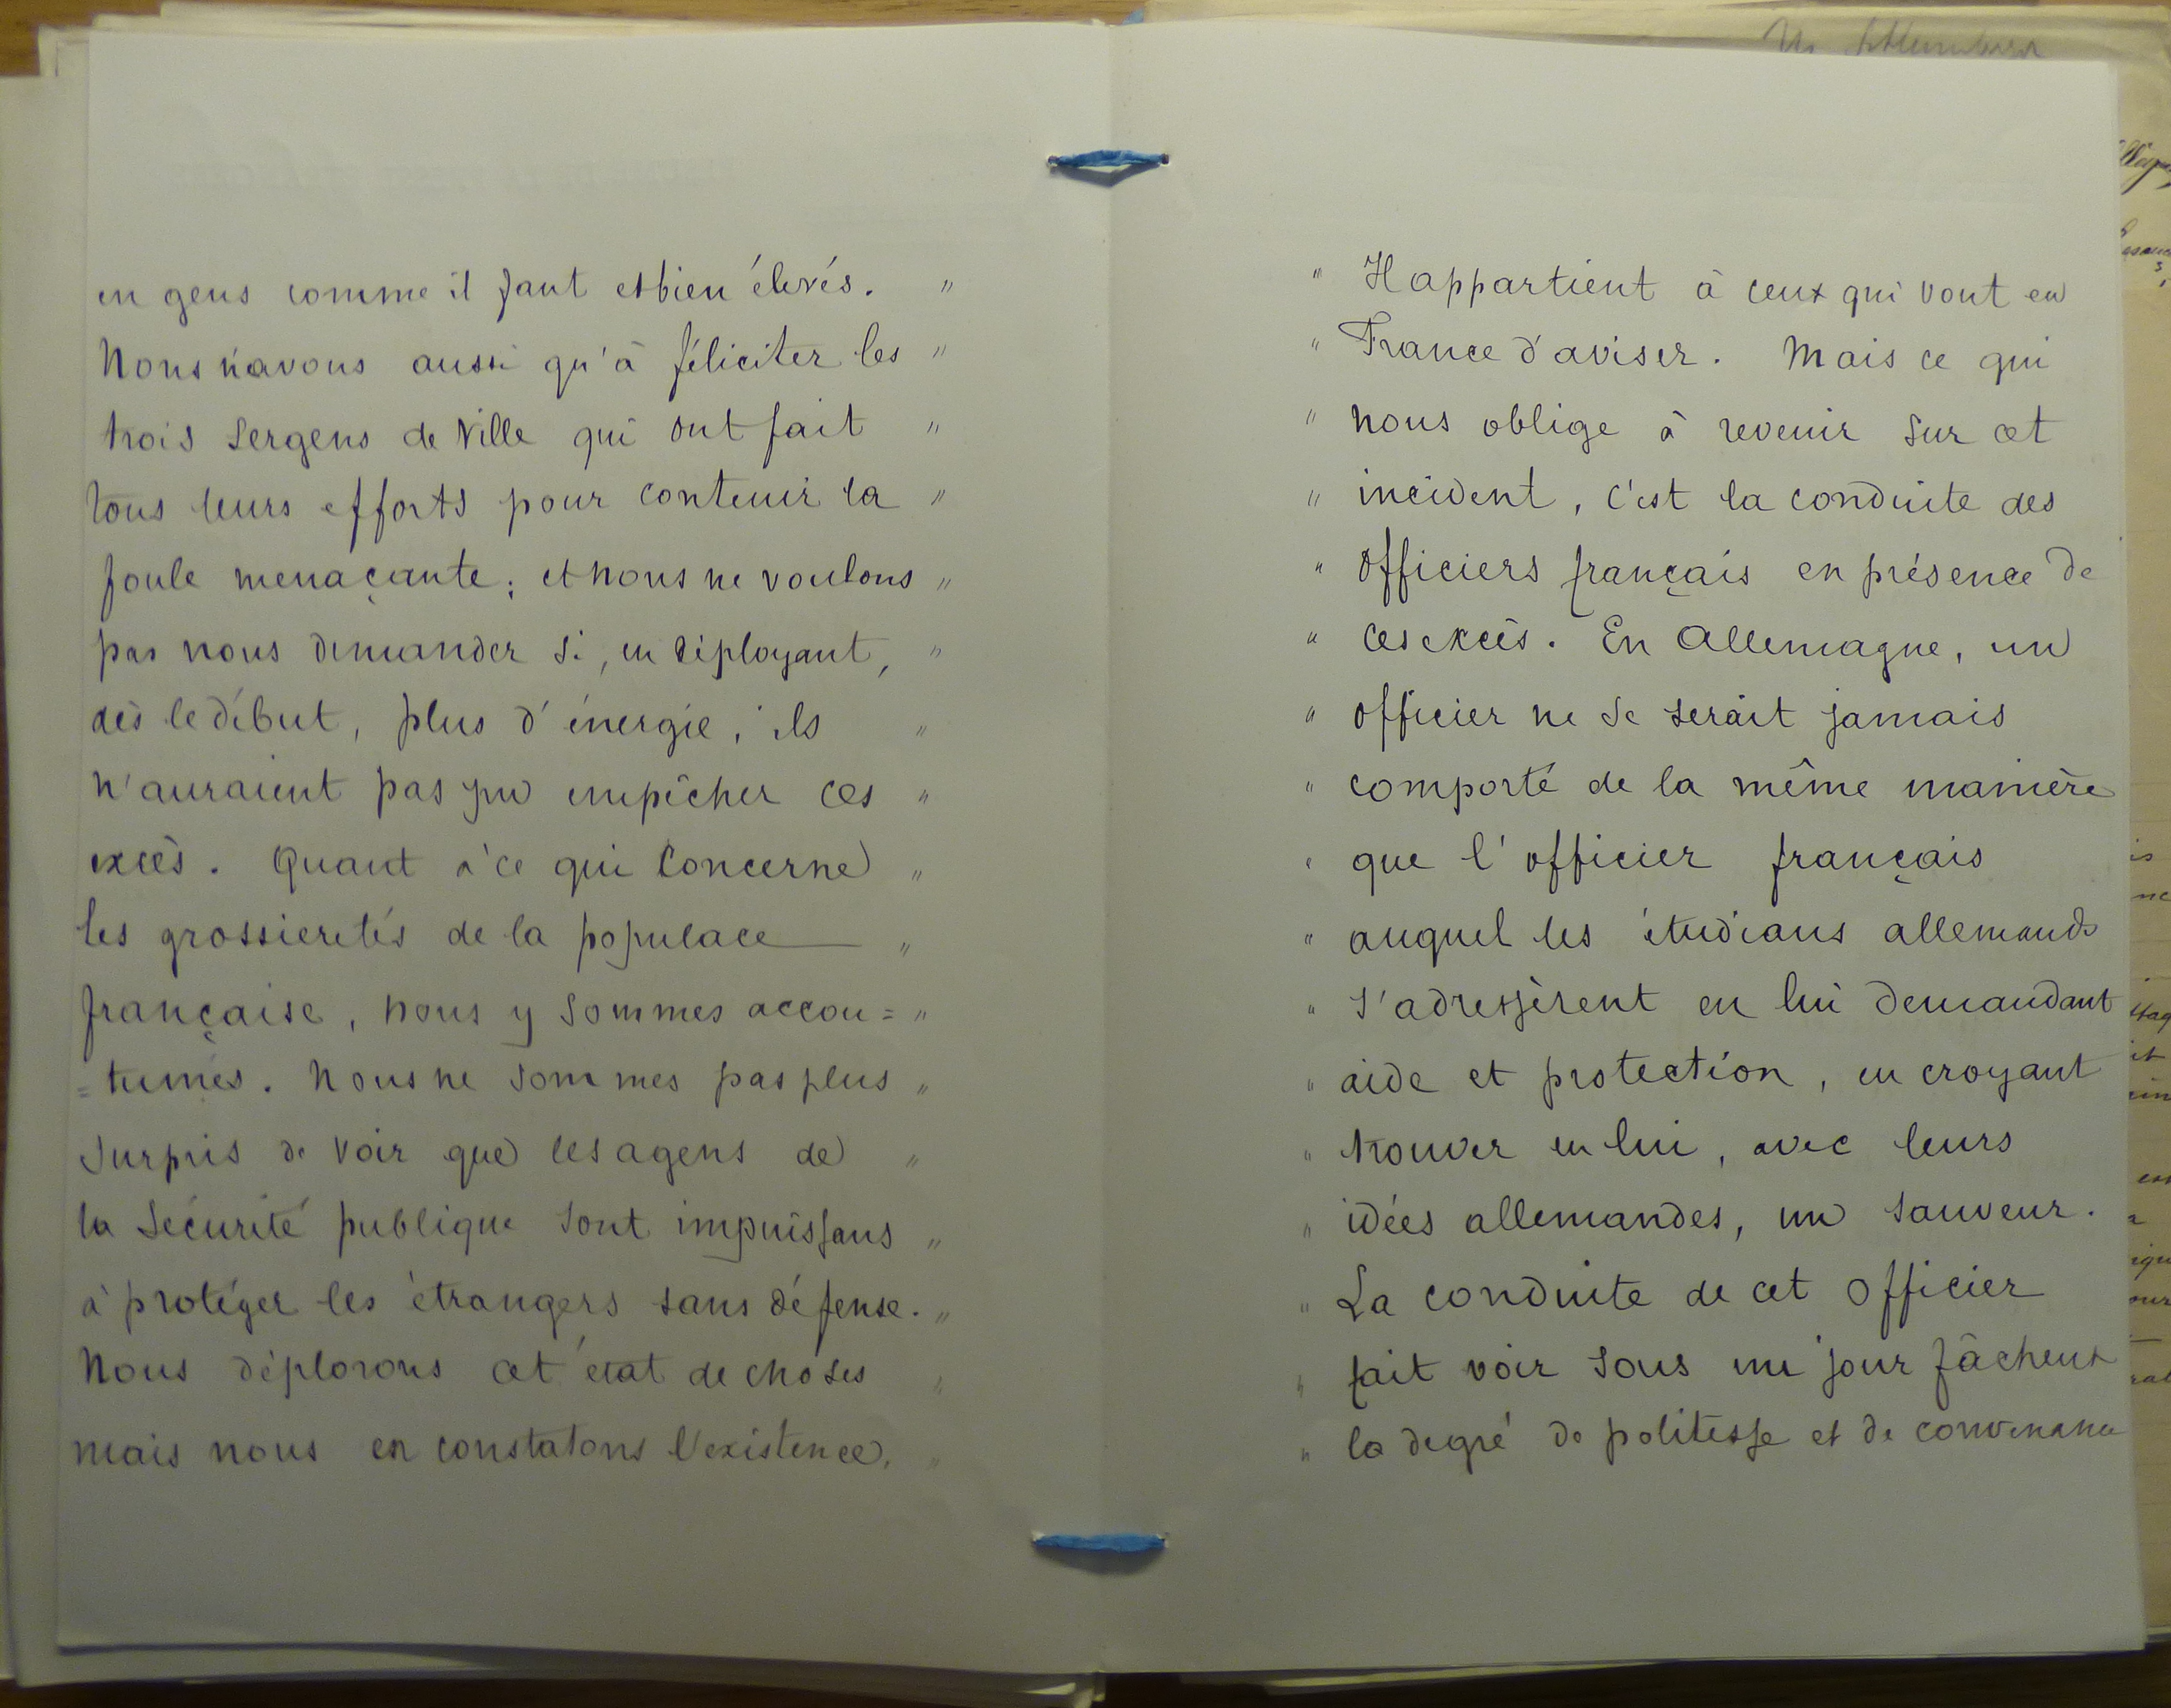 en gens comme il faut et bien élevés. "
Nous n'avons aussi qu'à féliciter les "
trois sergens de ville qui ont fait "
tous leurs efforts pour contenir la "
foule menaçante; et nous ne voulons "
pas nous demander si, en déployant, "
dès le début, plus d'énergie, ils "
n'auraient pas pu empêcher ces "
excès. Quant à ce qui concerne "
les grossieretés de la populace "
française, nous y sommes accou= "
=tumés. Nous ne sommes pas plus "
surpris de voir que les agens de "
la sécurité publique sont impuissans "
à protéger les étrangers sans défense. "
Nous déplorons cet état de choses "
mais nous en constatons l'existence. "
" Il appartient à ceux qui vont en
" France d'aviser. Mais ce qui
" nous oblige à revenir sur cet
" incident, c'est la conduite des
" officiers français en présence de
" ces excès. En Allemagne, un
" officier ne se serait jamais
" comporté de la même manière
" que l'officier français
" auquel les étudians allemands
" s'adressèrent en lui demandant
" aide et protection, en croyant
" trouver en lui, avec leurs
" idées allemandes, un sauveur.
" La conduite de cet officier
" fait voir sous un jour fâcheux
" le degré de politesse et de convenance